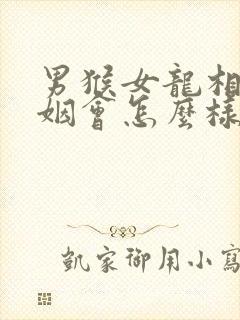 男猴女龍相
姻會怎麼樣
凱家御用小寫